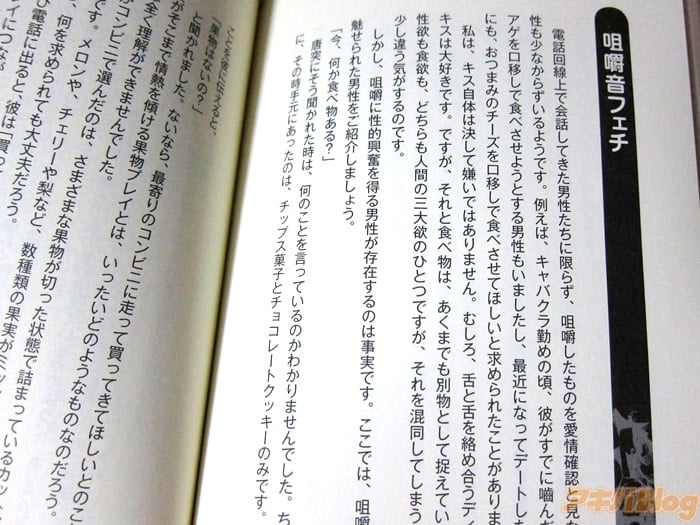 咀嚼音フェチ
電話回線上で会話してきた男性たちに限らず、咀嚼したものを愛情確認と見
性も少なからずいるようです。例えば、キャバクラ勤めの頃、彼がすでに嚙んだ
アゲを口移しで食べさせようとする男性もいましたし、最近になってデートした
にも、おつまみのチーズを口移しで食べさせてほしいと求められたことがありま
私は、キス自体は決して嫌いではありません。むしろ、舌と舌を絡め合うディ
キスは大好きです。ですが、それと食べ物は、あくまでも別物として捉えてい
性欲も食欲も、どちらも人間の三大欲のひとつですが、それを混同してしまう
少し違う気がするのです。
しかし、咀嚼に性的興奮を得る男性が存在するのは事実です。ここでは、咀嚼
魅せられた男性をご紹介しましょう。
「今、何か食べ物ある?」
唐突にそう聞かれた時は、何のことを言っているのかわかりませんでした。ち
に、その時手元にあったのは、チップス菓子とチョコレートクッキーのみです。
「果物はないの?」
と聞かれました。ないなら、最寄りのコンビニに走って買ってきてほしいとのこ
がそこまで情熱を傾ける果物プレイとは、いったいどのようなものなのだろう。
全く理解ができませんでした。
コンビニで選んだのは、さまざまな果物が切った状態で詰まっているカッ
た。メロンや、チェリーや梨など、数種類の果実がミッ
、何を求められても大丈夫だろう。
び電話に出ると、彼は「買っ
レイにつな
アキバBlog